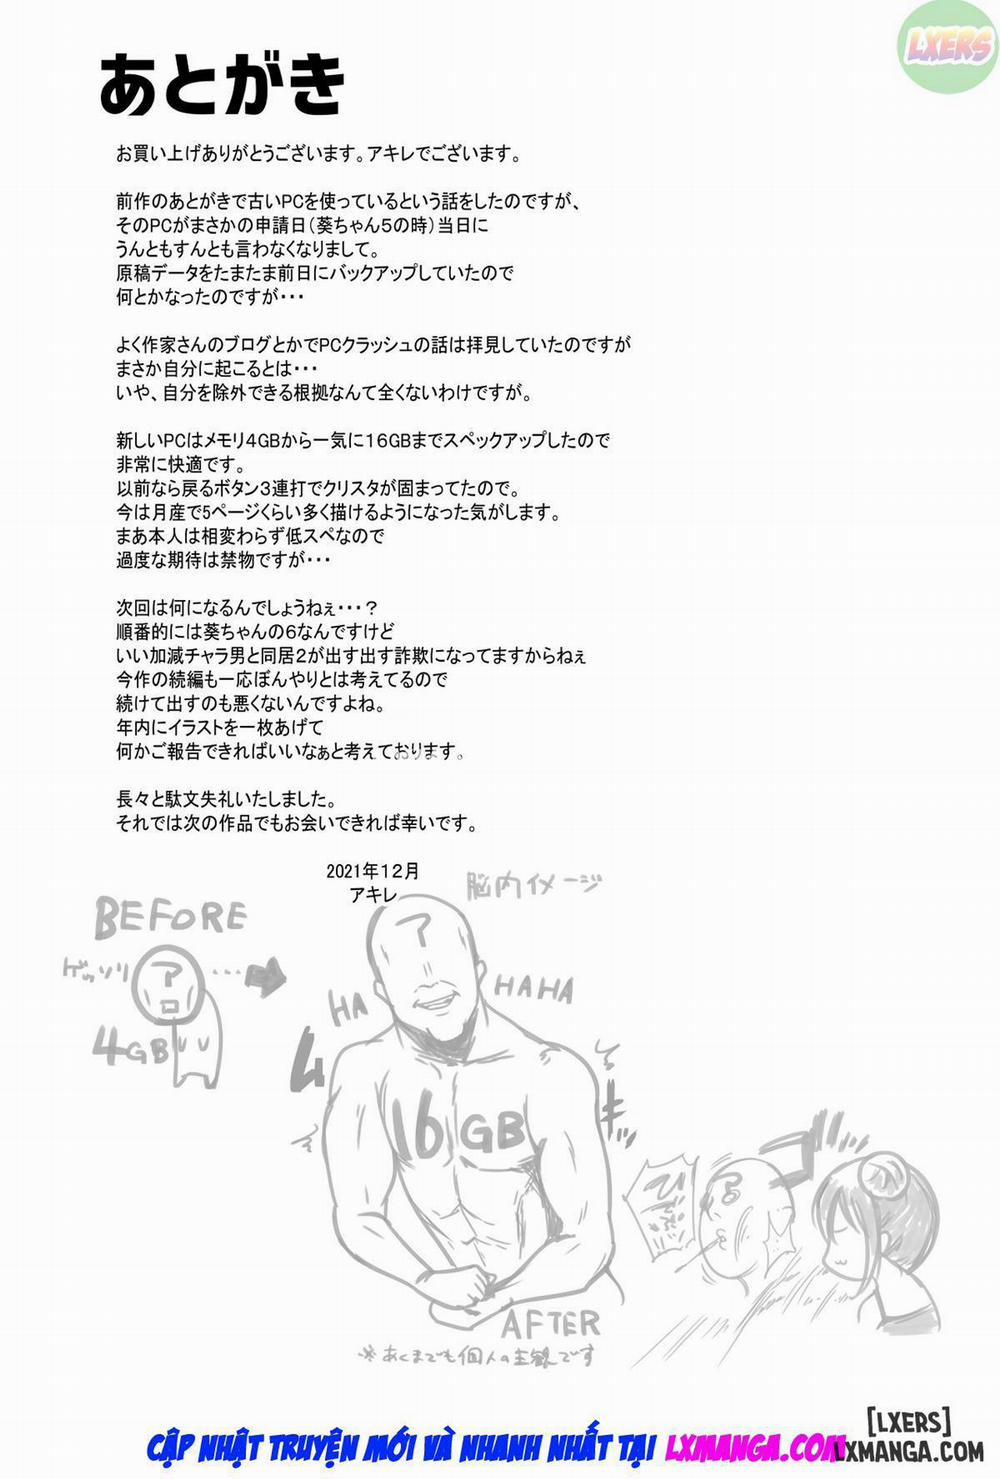 LXERS
あとがき
お買い上げありがとうございます。アキレでございます。
前作のあとがきで古いPCを使っているという話をしたのですが、
そのPCがまさかの申請日(葵ちゃん5の時)当日に
うんともすんとも言わなくなりまして。
原稿データをたまたま前日にバックアップしていたので
何とかなったのですが・・・
よく作家さんのブログとかでPCクラッシュの話は拝見していたのですが
まさか自分に起こるとは・・・
いや、自分を除外できる根拠なんて全くないわけですが。
新しいPCはメモリ4GBから一気に16GBまでスペックアップしたので
非常に快適です。
以前なら戻るボタン3連打でクリスタが固まってたので。
今は月産で5ページくらい多く描けるようになった気がします。
まあ本人は相変わらず低スペなので
過度な期待は禁物ですが・・・
次回は何になるんでしょうねぇ・・・?
順番的には葵ちゃんの6なんですけど
いい加減チャラ男と同居2が出す出す詐欺になってますからねぇ
今作の続編も一応ぼんやりとは考えてるので
続けて出すのも悪くないんですよね。
年内にイラストを一枚あげて
何かご報告できればいいなぁと考えております。
長々と駄文失礼いたしました。
それでは次の作品でもお会いできれば幸いです。
2021年12月
アキレ
脳内イメージ
BEFORE
ゲッソリ
ア
4GB
ア
HA
HAHA
ムキッ
16GB
AFTER
※あくまでも個人の主観です
[LXERS]
CẬP NHẬT TRUYỆN MỚI VÀ NHANH NHẤT TẠI LXMANGA.COM
LXMANGA.COM